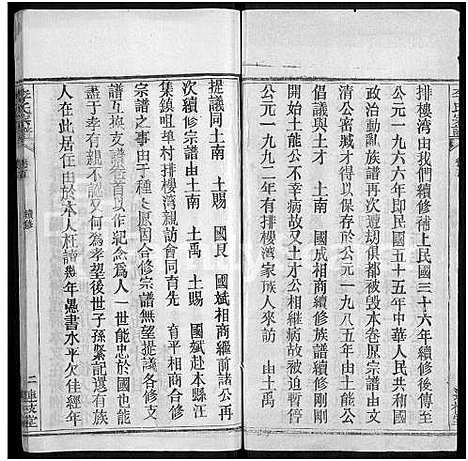 排楼湾由我們續修補上民國三十六年續修後傳至
公元一九六六年即民國五十五年中華人民共和國
政治動乱族譜再次遭刼俱都被毀水卷原宗譜由
清公密藏大吉幸存於公元一九八五年由土高
倡議與土才 土南 國成相商續修族譜續修剛
開始土高土才公相繼病故因此又被迫暫停至
公元一九九二年排樓湾家族人來訪 由土禹
提議同土南 土賜 國艮 國斌相商繼前諸公再
次續修宗譜由土南 土禹 土賜 國斌赴本縣汪
集鎮咀埠村排樓湾親訪會同育先 育平相商合修
宗譜之事由于種々原因合修宗譜無望手抄
譜互與支譜卷首以作紀念爲人一世能忠於國能
盡于孝有親不認又何爲孝望後世子孫緊記還有族
人在此居住由於本人枉讀幾年愚書水平欠佳經年
李氏宗譜
卷首
續修
二